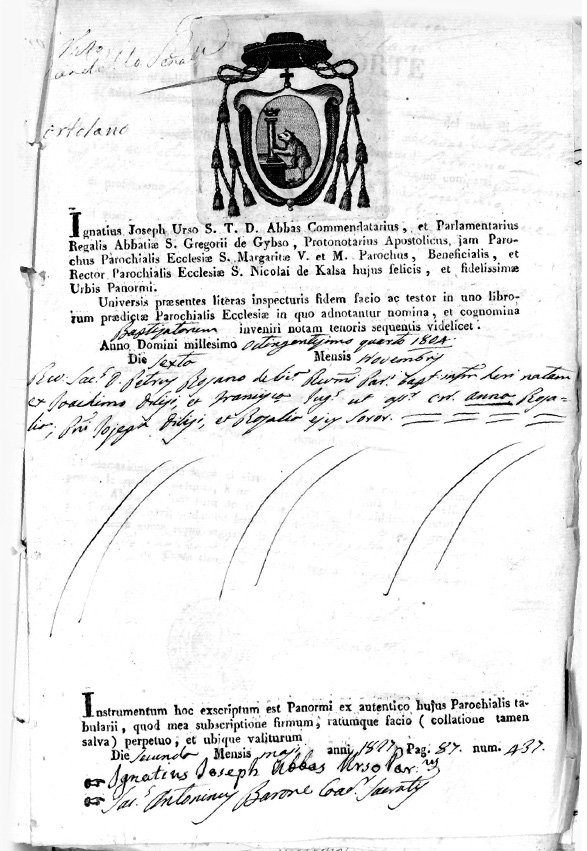 Visto
ortolano
Ignatius Joseph Urso S. T. D. Abbas Commendatarius, et Parlamentarius
Regalis Abbatiæ S. Gregorii de Gybso, Protonotarius Apostolicus, jam Paro-
chus Parochialis Ecclesiæ S. Margaritæ V. et M. Parochus, Beneficialis, et
Rector Parochialis Ecclesiæ S. Nicolai de Kalsa hujus felicis, et fidelissimæ
Urbis Panormi.
Universis præsentes literas inspecturis fidem facio ac testor in uno libro-
rum prædictæ Parochialis Ecclesiæ in quo adnotantur nomina, et cognomina
Baptizatorum inveniri notam tenoris sequentis videlicet.
Anno Domini millesimo Octingentesimo quarto 1804.
Die sexto Mensis Novembris
Rev. Sac. D. Petrus Rojano de lic. Rev.mi Par. bapt. inf.m heri natam
ex Joachimo et Francisca jug. ut app. cui anno Rosa-
lia, Joseph et Rosalia ejus soror.
Instrumentum hoc exscriptum est Panormi ex autentico hujus Parochialis ta-
bularii, quod mea subscriptione firmum, ratumque facio (collatione tamen
salva) perpetuo, et ubique valiturum
Die secunda Mensis maji anni 1827 Pag. 87. num. 437.
Ignatius Joseph Abbas Urso Par.us
Sac. Antoninus Barone Coad.